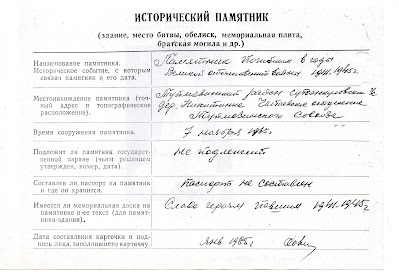 ИСТОРИЧЕСКИЙ ПАМЯТНИК
(здание, место битвы, обелиск, мемориальная плита,
братская могила и др.)
Наименование памятника.
Историческое событие, с которым
связан памятник и его дата.
Памятник погибшим в годы
Великой отечественной войны 1941-1945г
Местонахождение памятника (точный
адрес и топографическое
расположение).
район
дер. Никитинка
Время сооружения памятника.
7 ноября
Подлежит ли памятник государст-
венной охране (чьим решением
утвержден, номер, дата).
не подлежит
Составлен ли паспорт на памятник
и где он хранится.
Паспорт не составлен
Имеется ли мемориальная доска на
памятнике и ее текст (для памят-
ника-здания).
Слава героям павшим 1941-1945г
Дата составления карточки и под-
пись лица, заполнившего карточку.
янв 1985г